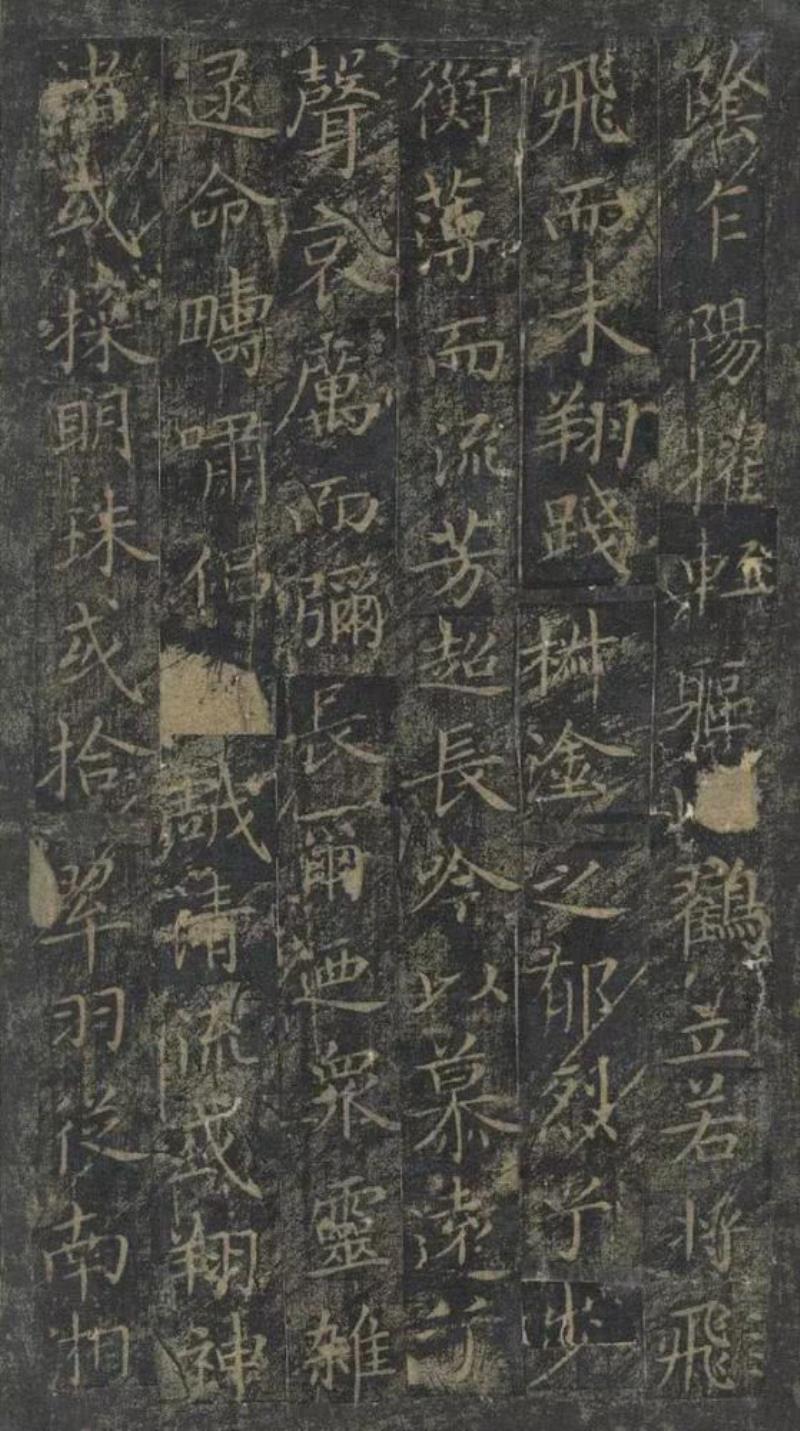 陰乍陽擢輕軀以鶴立若將飛
飛而未翔踐椒塗之郁烈兮步
衡薄而流芳超長吟以慕遠兮
聲哀厲而彌長爾迺衆靈雜
逯命疇嘯侶戲清流或翔神
渚或採明珠或拾翠羽從南湘